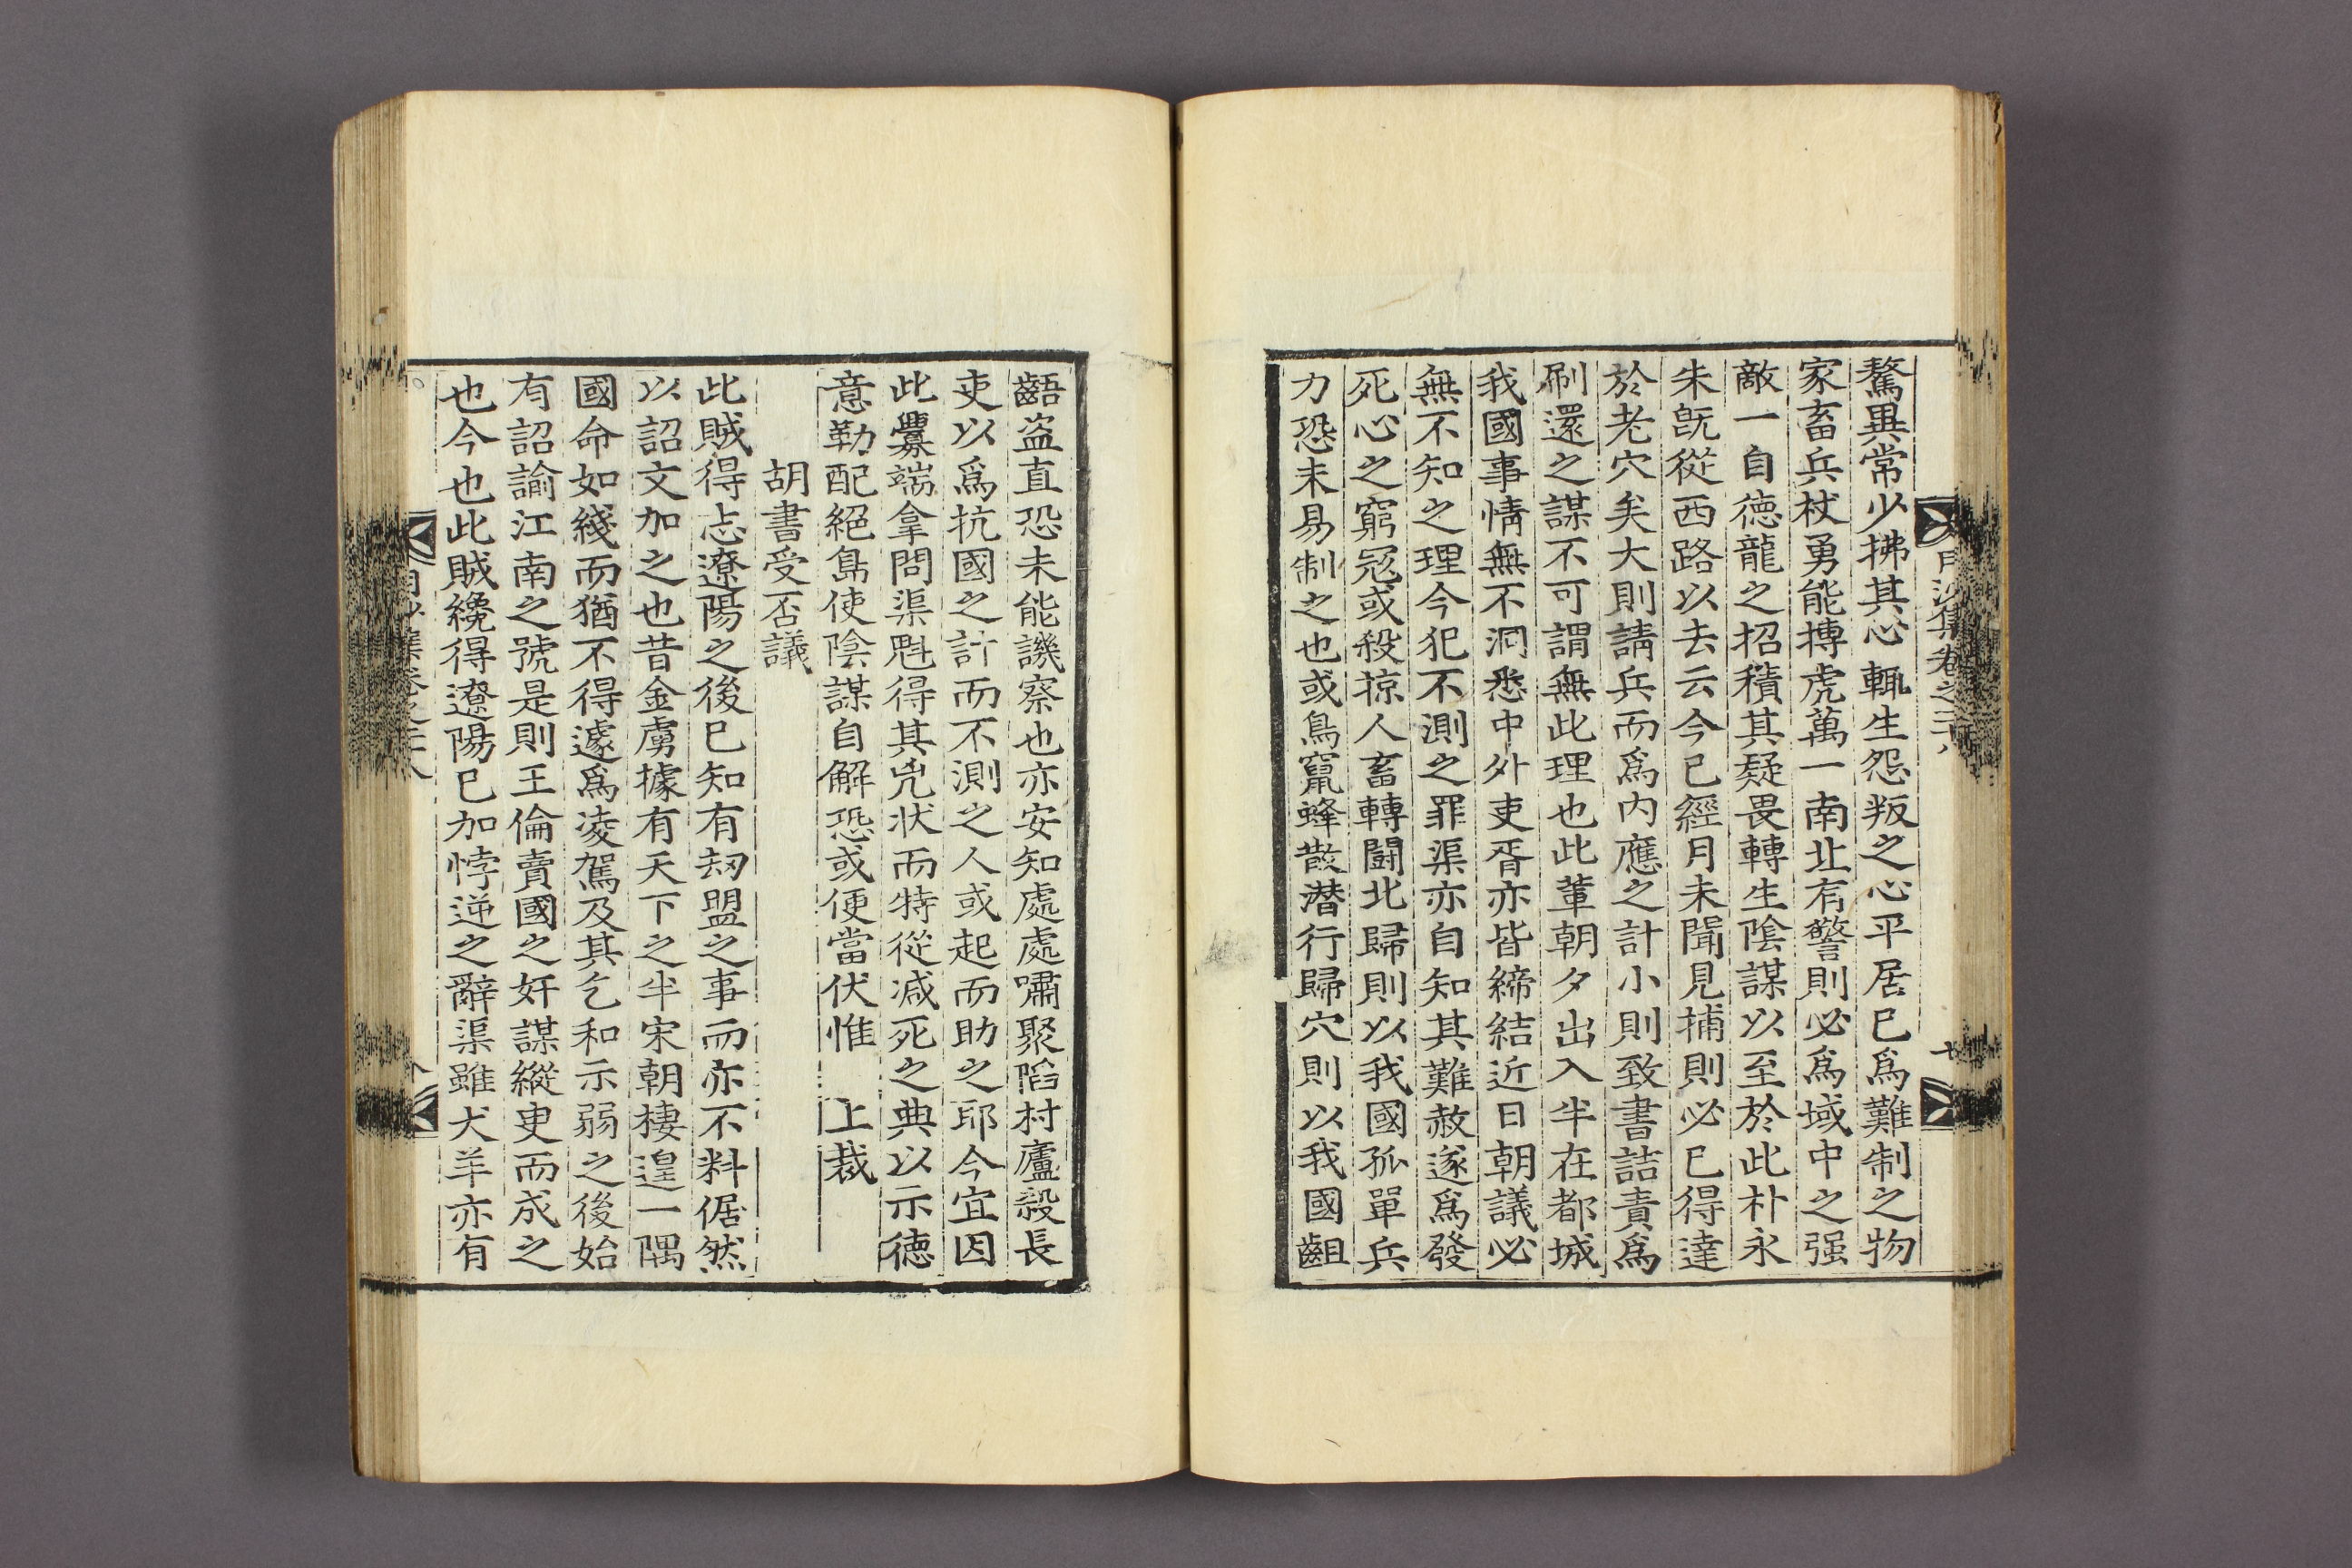 月沙集卷之三十八
七
驁異常少拂其心輒生怨叛之心平居已爲難制之物
家畜兵杖勇能搏虎萬一南北有警則必爲域中之强
敵一自德龍之招積其疑畏轉生陰謀以至於此朴永
朱旣從西路以去云今已經月未聞見捕則必已得達
於老穴矣大則請兵而爲內應之計小則致書詰責爲
刷還之謀不可謂無此理也此輩朝夕出入半在都城
我國事情無不洞悉中外吏胥亦皆締結近日朝議必
無不知之理今犯不測之罪渠亦自知其難赦遂爲發
死心之窮冦或殺掠人畜轉鬪北歸則以我國孤單兵
力恐未易制之也或鳥竄蜂散潛行歸穴則以我國齟
齬盗直恐未能譏察也亦安知處處嘯聚陷村廬殺長
吏以爲抗國之計而不測之人或起而助之耶今宜因
此釁端拿問渠魁得其兇状而特從减死之典以示德
意勒配絕島使陰謀自解恐或便當伏惟 上裁
胡書受否議
此賊得志遼陽之後已知有刼盟之事而亦不料倨然
以詔文加之也昔金虜據有天下之半宋朝棲遑一隅
國命如綫而猶不得遽爲凌駕及其乞和示弱之後始
有詔諭江南之號是則王倫賣國之奸謀縱吏而成之
也今也此賊纔得遼陽已加悖逆之辭渠雖犬羊亦有